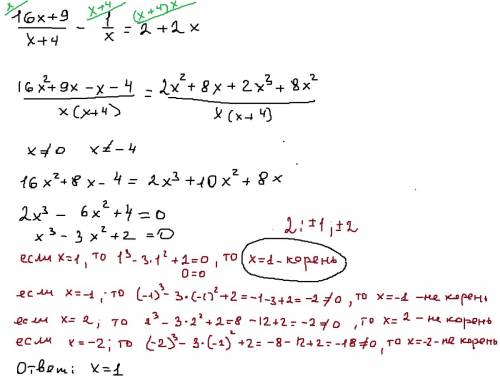 x x+4 (x+4)x
(16x+9)/(x+4) - 1/x = 2+2x
(16x²+9x-x-4)/(x(x+4)) = (2x²+8x+2x³+8x²)/(x(x+4))
x≠0 x≠-4
16x²+8x-4 = 2x³+10x²+8x
2x³ - 6x²+4=0
x³-3x²+2=0 2: ±1; ±2
если x=1, то 1³-3·1²+2=0, то x=1-корень
0=0
если x=-1, то (-1)³-3·(-1)²+2=-1-3+2=-2≠0, то x=-1-не корень
если x=2; то 2³-3·2²+2=8-12+2=-2≠0, то x=2-не корень
если x=-2; то (-2)³-3·(-2)²+2=-8-12+2=-18≠0, то x=-2-не корень
Ответ: x=1